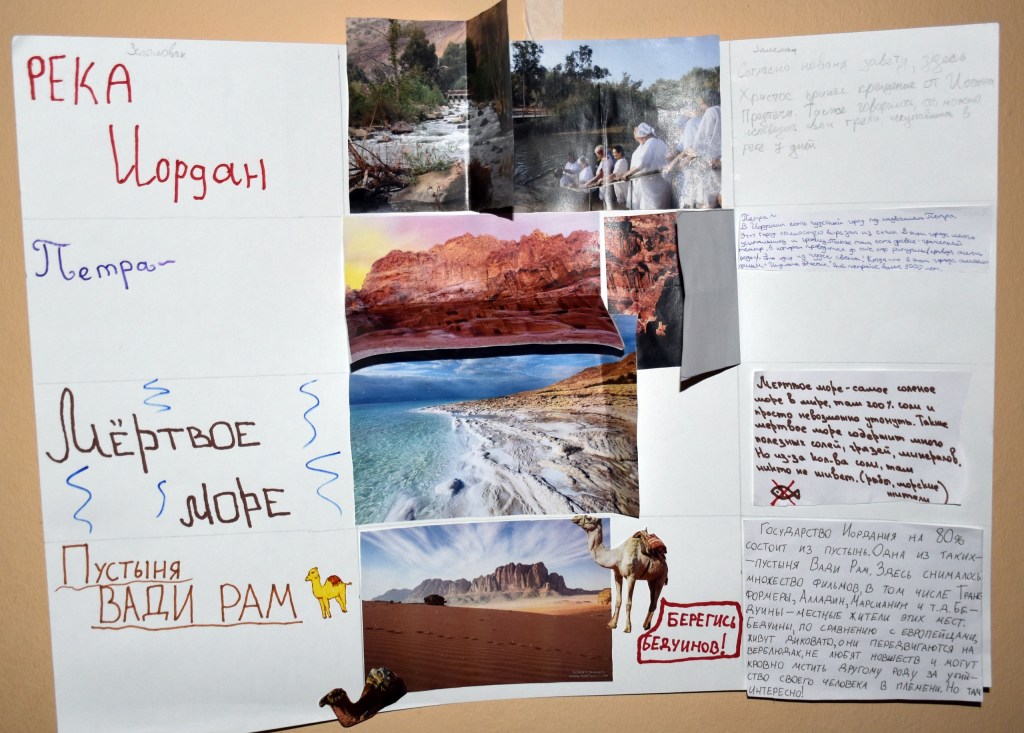 Заголовок
РЕКА
Иордан
Заметки
Согласно новому завету, здесь
Христос принял крещение от Иоанна
Предтечи. Также говорилось, что можно
свои грехи искупавшись в
реке 7 дней
Петра~
Петра~
В Иордании есть чудесный город под названием Петра
Этот город полностью вырезан из скал. В этом городе много
театр, в котором
свыше 2000 лет.
МЁРТВОЕ
МОРЕ
Мертвое море - самое соленое
море в мире, там 200% соли и
просто невозможно утонуть. Также
мертвое море содержит много
полезных солей, грязей, минералов.
Но из-за кол.ва соли, там
никто не живет. (рыбы, морские
жители
ПУСТЫНЯ
ВАДИ РАМ
БЕРЕГИСЬ
БЕДУИНОВ!
ГОСУДАРСТВО ИОРДАНИЯ НА 80%
СОСТОИТ ИЗ ПУСТЫНЬ. ОДНА ИЗ ТАКИХ-
-ПУСТЫНЯ ВАДИ РАМ. ЗДЕСЬ СНИМАЛОСЬ
МНОЖЕСТВО ФИЛЬМОВ, В ТОМ ЧИСЛЕ ТРАНС
ФОРМЕРЫ, АЛЛАДИН, МАРСИАНИН И Т.Д. БЕ-
ДУИНЫ - МЕСТНЫЕ ЖИТЕЛИ ЭТИХ МЕСТ.
БЕДУИНЫ, ПО СРАВНЕНИЮ С ЕВРОПЕЙЦАМИ,
ЖИВУТ ДИКОВАТО, ОНИ ПЕРЕДВИГАЮТСЯ НА
ВЕРБЛЮДАХ, НЕ ЛЮБЯТ НОВШЕСТВ И МОГУТ
КРОВНО МСТИТЬ ДРУГОМУ РОДУ ЗА УБИЙ-
СТВО СВОЕГО ЧЕЛОВЕКА В ПЛЕМЕНИ. НО ТАМ
ИНТЕРЕСНО!